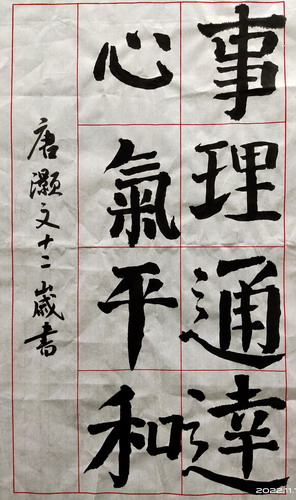 事理通達
心氣平和
唐灝文十二歲書
2022.11.1